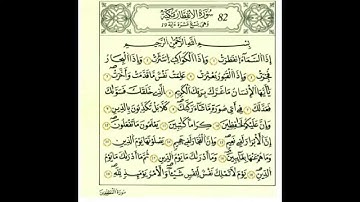 سورة الانفطار مكية 82
بسم الله الرحمن الرحيم
إذا السماء انفطرت وإذا الكواكب انتثرت وإذا البحار
فجرت وإذا القبور بعثرت علمت نفس ما قدمت وأخرت
يأيها الإنسان ما غرك بربك الكريم الذي خلقك فسوىك
فعدلك في أي صورة ما شاء ركبك كلا بل تكذبون بالدين
وإن عليكم لحفظين كراما كتبين يعلمون ما تفعلون
إن الأبرار لفي نعيم وإن الفجار لفي جحيم يصلونها يوم الدين
وما هم عنها بغائبين وما أدرىك ما يوم الدين ثم ما أدرىك ما يوم
الدين يوم لا تملك نفس لنفس شيئا والأمر يومئذ لله
سورة المطففين